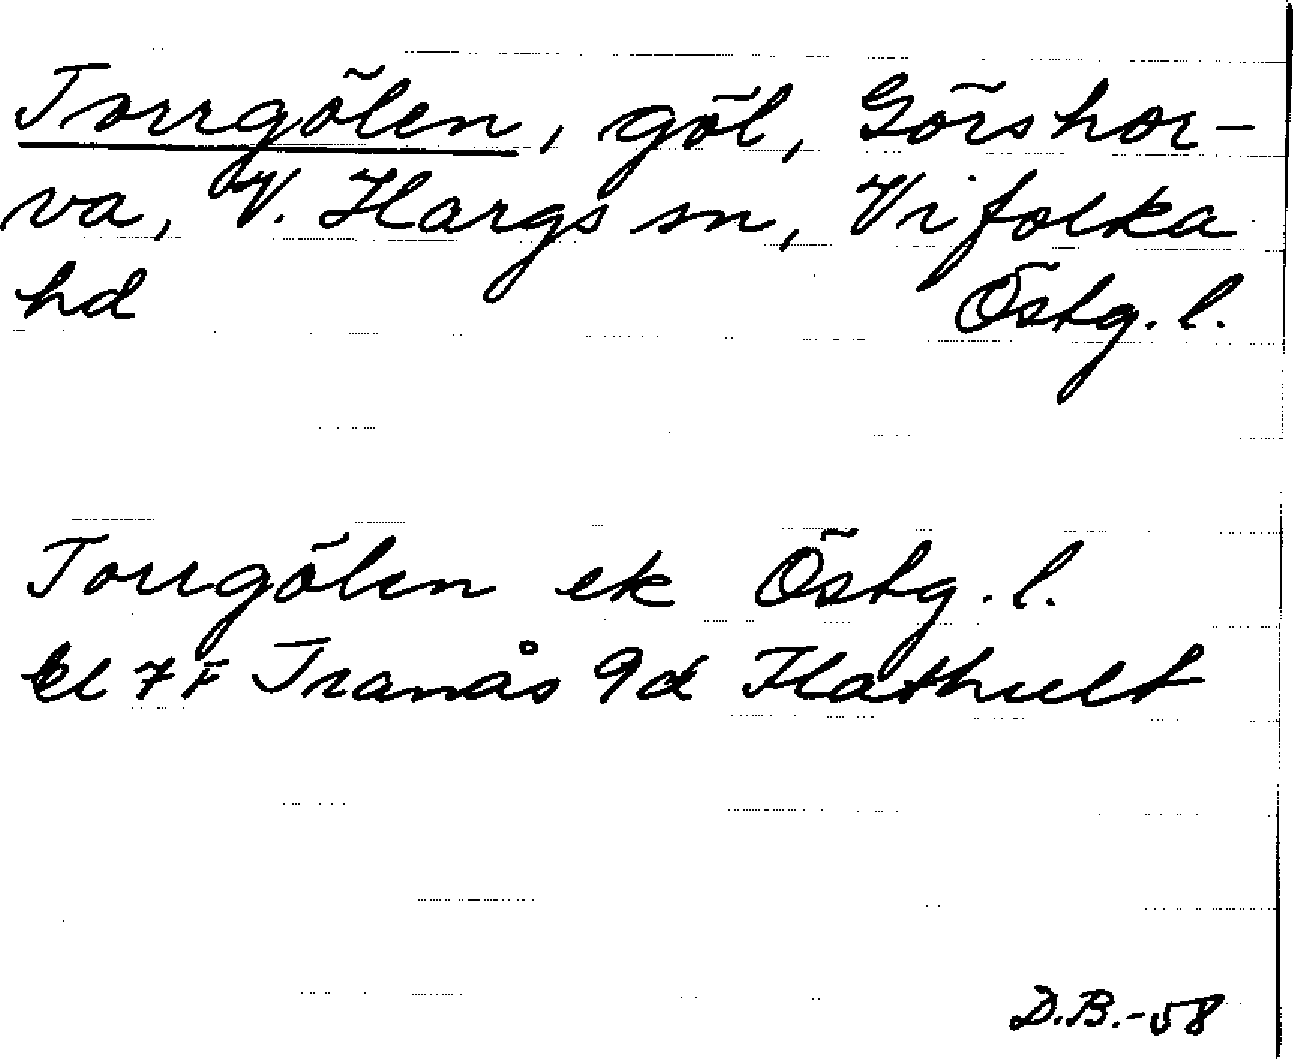 Torrgölen, göl, Görshor-
va, V. Hargs sn, Vifolka
hd Östg. l.
Torrgölen ek Östg. l.
bl 7 F Tranås 9d Flathult
D.B.-58